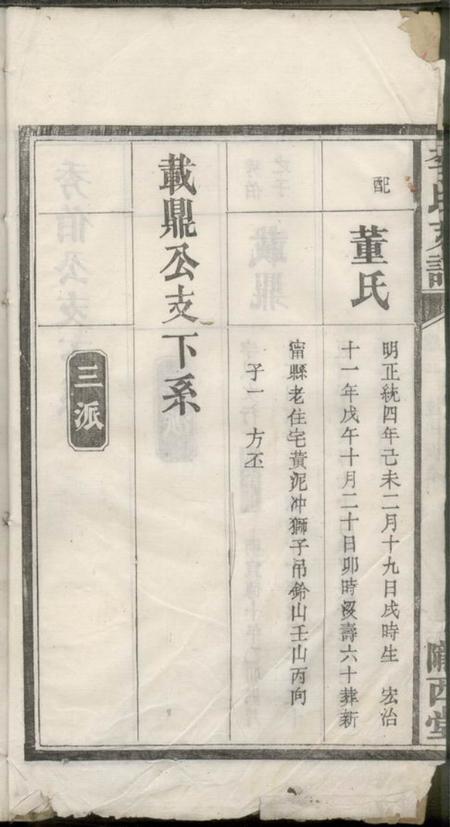 李氏支譜
隴西堂
配
董氏
明正統四年己未二月十九日戌時生 宏治
十一年戊午十月二十日卯時沒壽六十葬新
甯縣老住宅黃泥冲獅子吊鈴山壬山丙向
子一 方丕
載鼎公支下系
三派